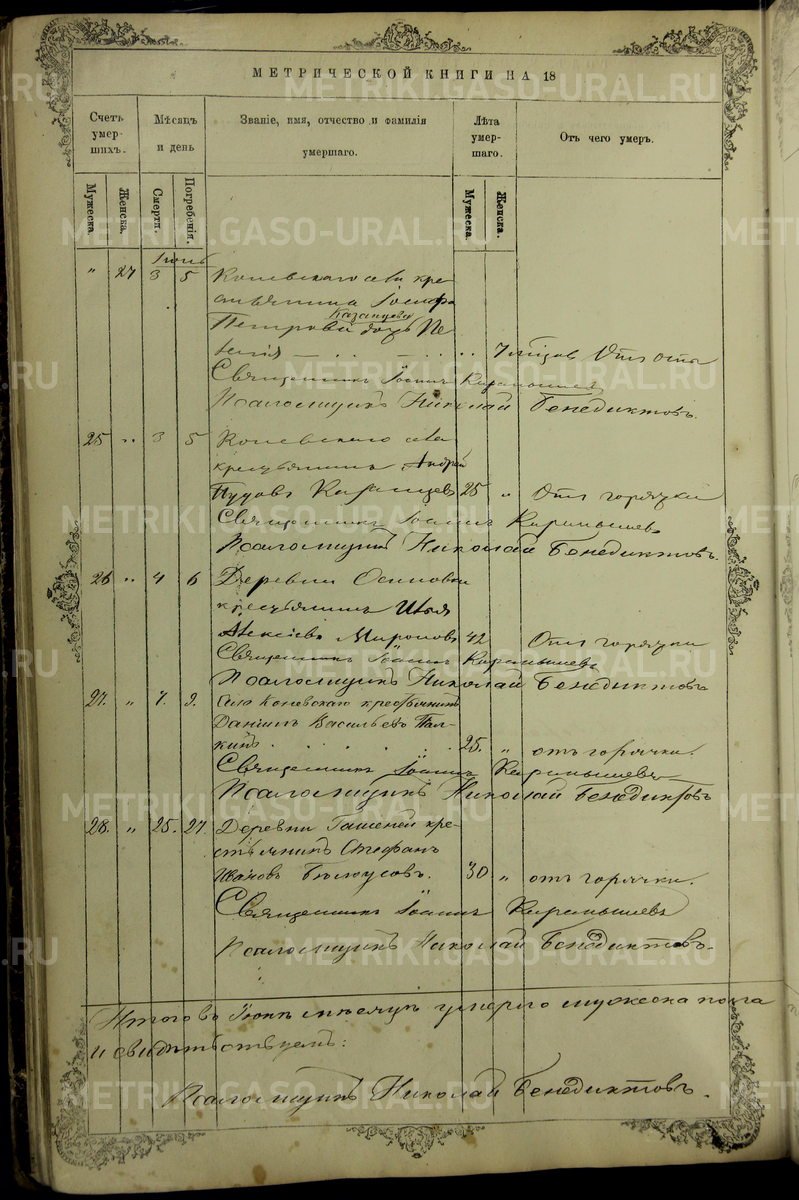 МЕТРИЧЕСКОЙ КНИГИ НА 18
Счетъ умер-шихъ.
Мѣсяцъ и день
Званіе, имя, отчество и фамилія умершаго.
Лѣта умер-шаго.
Отъ чего умеръ.
Мужеска.
Женска.
Смерти.
Погребенія.
Мужеска.
Женска.
Іюнь
" 27 3 5 Коневскаго села кре-
стьянина Іосифа
Казанцева
Петрова дочь
Отъ оспы
Священникъ Іоаннъ Карамышевъ
Псаломщикъ Николай Бенедиктовъ.
25 " 3 5 Коневскаго села
крестьянинъ Андрей
Казанцевъ 25 " Отъ горячки
Священникъ Іоаннъ Карамышевъ
Псаломщикъ Николай Бенедиктовъ.
26 " 4 6 Деревни Осиновки
крестьянинъ Илья
Алексіевъ Мироновъ 42 Отъ горячки
Священникъ Іоаннъ Карамышевъ
Псаломщикъ Николай Бенедиктовъ
27. " 7. 9. Села Коневскаго крестьянинъ
Даніилъ Васильевъ Пал-
кинъ 25. " отъ горячки.
Священникъ Іоаннъ Карамышевъ
Псаломщикъ Николай Бенедиктовъ
28. " 25. 27. Деревни кре-
стьянинъ Стефанъ
Ивановъ Бѣлоусовъ. 30 " отъ горячки.
Священникъ Іоаннъ Карамышевъ
Псаломщикъ Николай Бенедиктовъ.
Итого въ Іюнѣ мѣсяцѣ умерло мужеска пола
и свидѣтельствуемъ:
Псаломщикъ Николай Бенедиктовъ.
METRIKI.GASO-URAL.RU